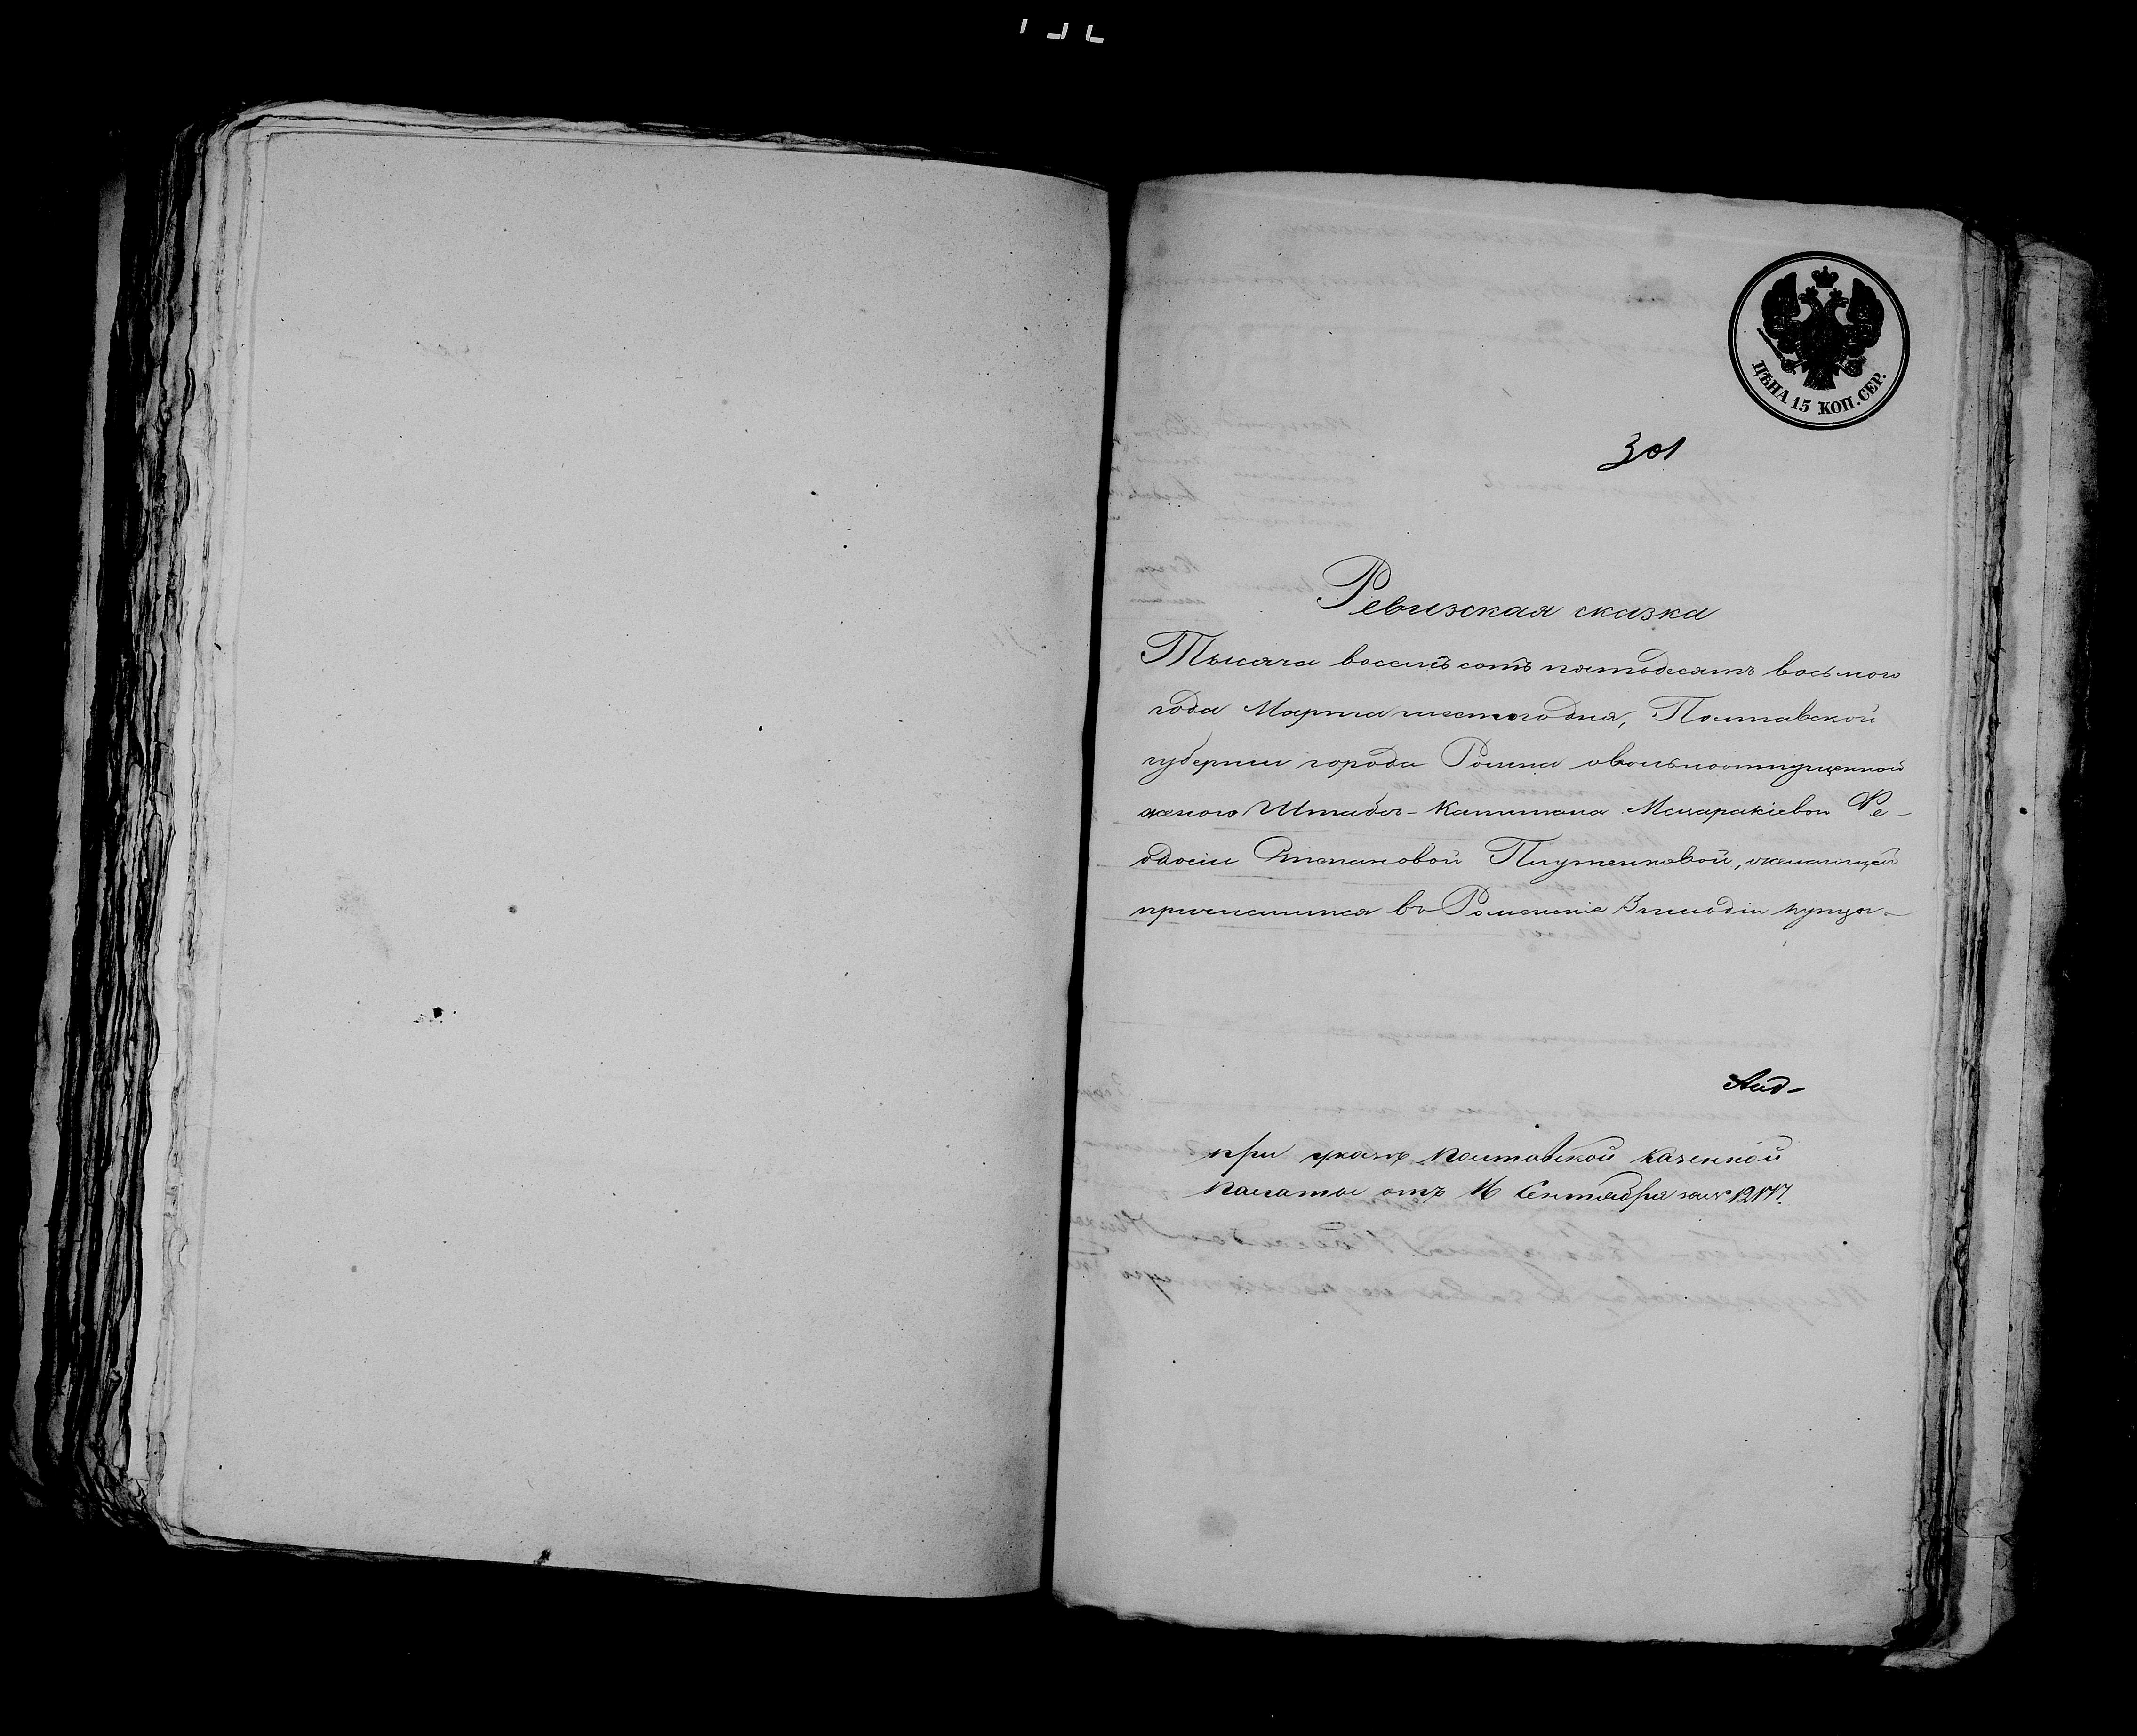 ЦѢНА 15 КОП. СЕР.
301
Ревизская сказка
Тысяча восемь сотъ пятьдесятъ восьмого
года Марта шестого дня, Полтавской
губерніи города Ромна о вольноотпущенной
женою Штабсъ-Капитана Ѳе-
одосіи Степановой Плутенковой, желающей
причислится въ Роменскіе 3 гильдіи купцы.
при указѣ Полтавской Казенной
Палаты отъ 16 Сентября за №